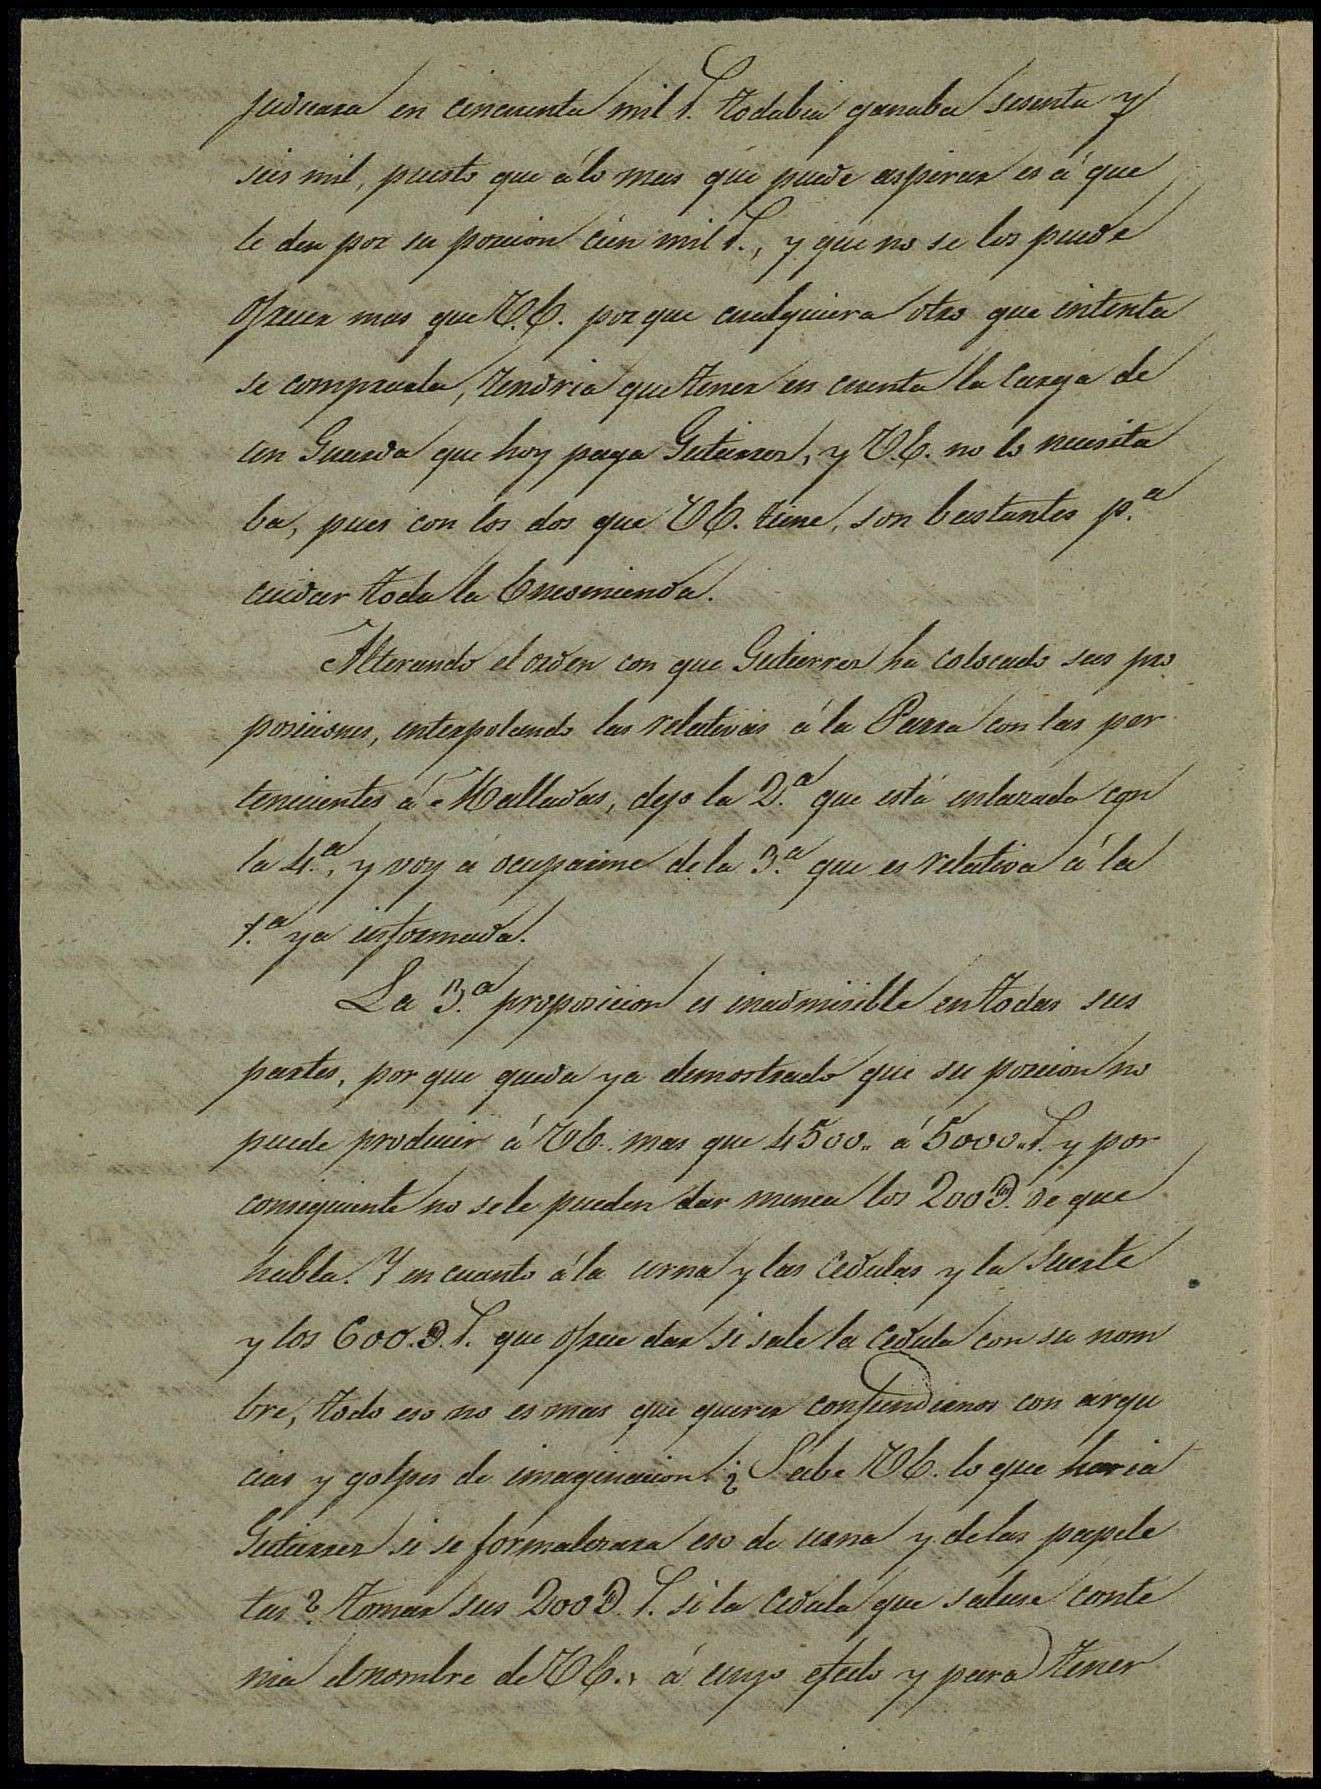 judicara en cincuenta mil r. todabia ganaba sesenta y
seis mil, puesto que á lo mas que puede aspirar es á que
le den por su porcion cien mil r., y que no se los puede
ofrecer mas que V.E. porque cualquiera otro que intenta
se comprarla, tendria que tener en cuenta la carga de
un Guarda que hoy paga Gutierrez, y V.E. no lo necesita
ba, pues con los dos que V.E. tiene, son bastantes p.ª
cuidar toda la Encomienda.
Alterando el orden con que Gutierrez ha colocado sus pro
posiciones, interpolando las relativas á la Parra con las per
tenecientes á Malladas, dejo la 2.ª que está enlazada con
la 4.ª, y voy á ocuparme de la 3.ª que es relativa á la
1.ª ya informada.
La 3.ª proposicion es inadmisible en todas sus
partes, por que queda ya demostrado que su porcion no
puede producir á V.E. mas que 4500,, á 5000,, r. y por
consiguiente no se le pueden dar nunca los 200 D. de que
habla. Y en cuanto á la urna y las cedulas y la suerte
y los 600. D. r. que ofrece dar si sale la cedula con su nom
bre, todo eso no es mas que querer confundirnos con argu
cias y golpes de imaginacion. ¿Sabe V.E. lo que haria
Gutierrez si se formalizara eso de urna y de las papele
tas? tomar sus 200 D. r. si la cedula que saliese conte
nia el nombre de V.E., á cuyo efecto y para tener